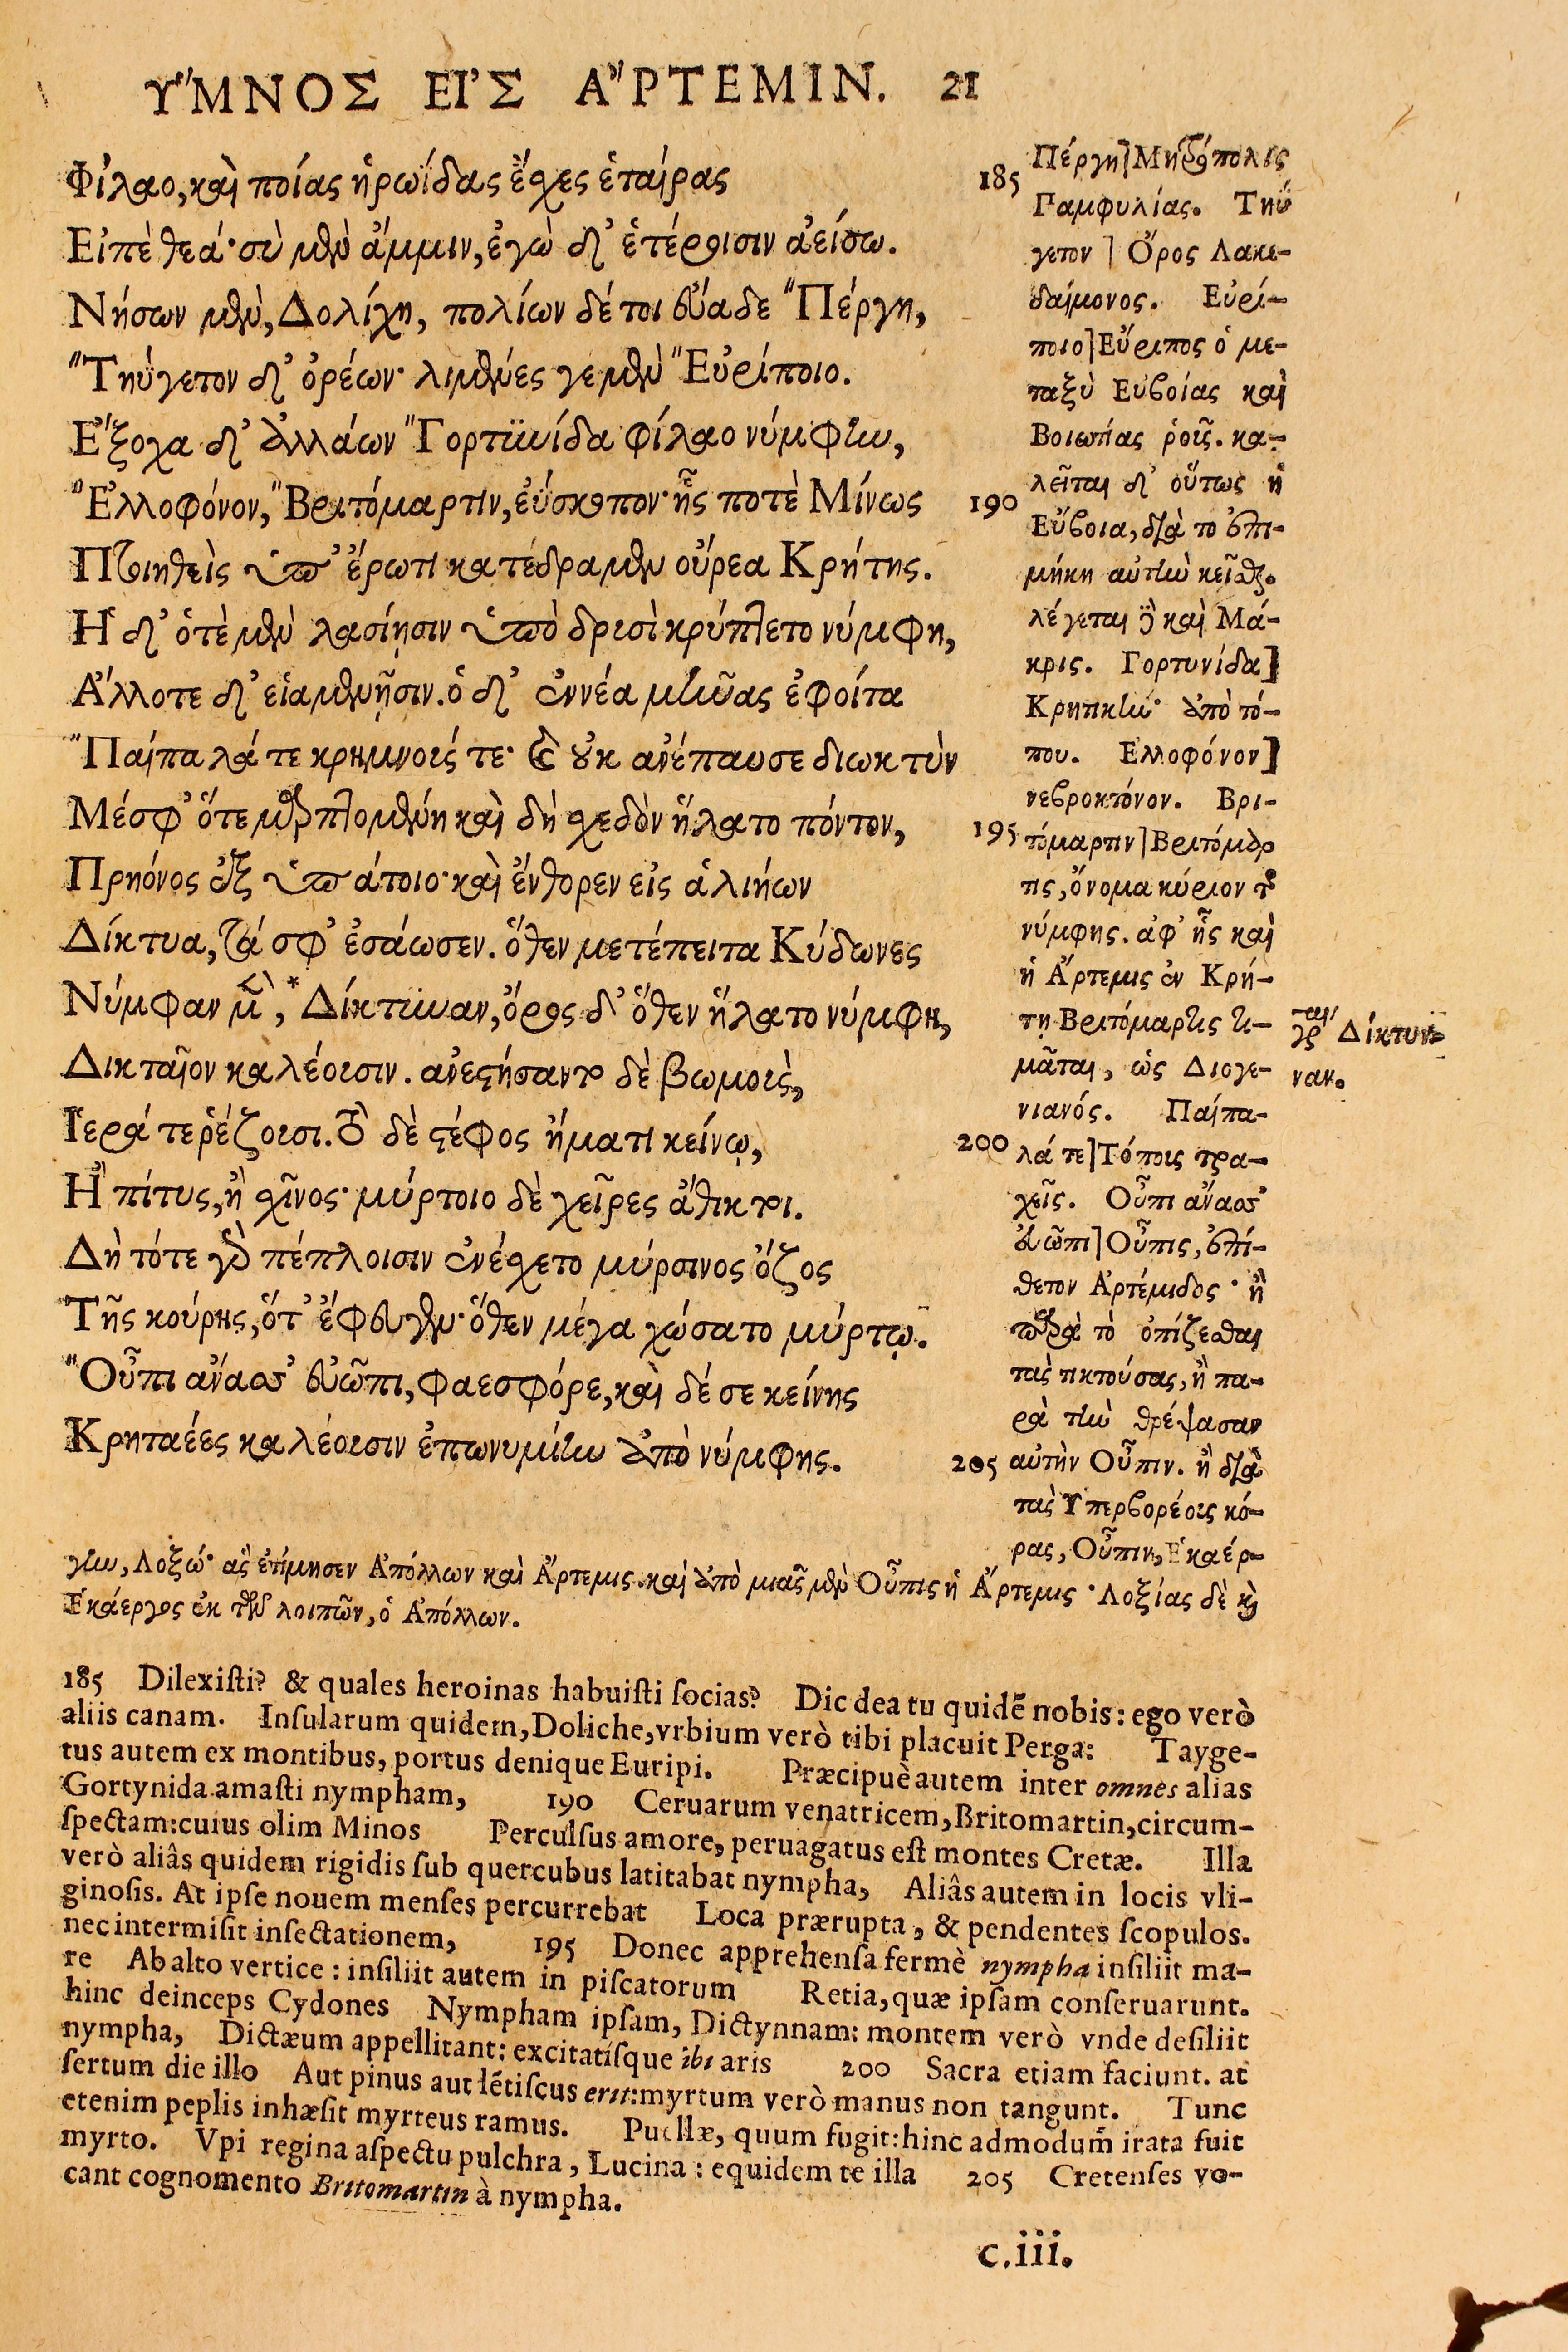 ΥΜΝΟΣ ΕΙΣ ΑΡΤΕΜΙΝ. 21
Φίλαο, καὶ ποίας ἡρωΐδας ἔσχες ἑταίρας 185
Εἰπὲ θεά· σὺ μὲν ἄμμιν, ἐγὼ δ' ἑτέροισιν ἀείσω.
Νήσων μὲν, Δολίχη, πολίων δέ τοι εὔαδε "Πέργη,
"Τηΰγετον δ' ὀρέων· λιμένες γε μὲν "Εὐρίποιο.
Ἔξοχα δ' ἀλλάων "Γορτυνίδα φίλαο νύμφην,
"Ἐλλοφόνον, "Βριτόμαρτιν, ἐΰσκοπον· ἧς ποτὲ Μίνως 190
Πτοιηθεὶς ὑπ' ἔρωτι κατέδραμεν οὔρεα Κρήτης.
Ἡ δ' ὁτὲ μὲν λασίῃσιν ὑπὸ δρυσὶ κρύπτετο νύμφη,
Ἄλλοτε δ' εἱαμενῇσιν. ὁ δ' ἐννέα μῆνας ἐφοίτα
"Παίπαλά τε κρημνούς τε· καὶ οὐκ ἀνέπαυσε διωκτὺν
Μέσφ' ὅτε μαρπτομένη καὶ δὴ σχεδὸν ἥλατο πόντον, 195
Πρηόνος ἐξ ὑπάτοιο· καὶ ἔνθορεν εἰς ἁλιήων
Δίκτυα, τά σφ' ἐσάωσεν. ὅθεν μετέπειτα Κύδωνες
Νύμφαν μὲν, * Δίκτυναν, ὄρος δ' ὅθεν ἥλατο νύμφη,
Δικταῖον καλέουσιν. ἀνεστήσαντο δὲ βωμοὺς,
Ἱερά τε ῥέζουσι. τὸ δὲ στέφος ἤματι κείνῳ, 200
Ἢ πίτυς, ἢ σχῖνος· μύρτοιο δὲ χεῖρες ἄθικτοι.
Δὴ τότε γὰρ πέπλοισιν ἐνέσχετο μύρσινος ὄζος
Τῆς κούρης, ὅτ' ἔφευγεν· ὅθεν μέγα χώσατο μύρτῳ.
"Οὖπι ἄνασσ' εὐῶπι, φαεσφόρε, καὶ δέ σε κείνης
Κρηταέες καλέουσιν ἐπωνυμίην ἀπὸ νύμφης. 205
Πέργη] Μητρόπολις
Παμφυλίας. Τηΰ
γετον] Ὄρος Λακε-
δαίμονος. Εὐρί-
ποιο] Εὔριπος ὁ με-
ταξὺ Εὐβοίας καὶ
Βοιωτίας ῥοῦς. κα-
λεῖται δ' οὕτως ἡ
Εὔβοια, διὰ τὸ ἐπι-
μήκη αὐτὴν κεῖσθαι.
λέγεται δὲ καὶ Μά-
κρις. Γορτυνίδα]
Κρητικὴν· ἀπὸ τό-
που. Ἐλλοφόνον]
νεβροκτόνον. Βρι-
τόμαρτιν] Βριτόμαρ
τις, ὄνομα κύριον τῆς
νύμφης. ἀφ' ἧς καὶ
ἡ Ἄρτεμις ἐν Κρή-
τῃ Βριτόμαρτις τι-
μᾶται, ὡς Διογε-
νιανός. Παίπα-
λά τε] Τόποις τρα-
χεῖς. Οὖπι ἄνασσ'
εὐῶπι] Οὖπις, ἐπί-
θετον Ἀρτέμιδος· ἢ
παρὰ τὸ ὀπίζεσθαι
τὰς τικτούσας, ἢ πα-
ρὰ τὴν θρέψασαν
αὐτὴν Οὖπιν. ἢ διὰ
τὰς Ὑπερβορέους κό-
ρας, Οὖπιν, Ἑκαέρ-
γρ Δίκτυν-
ναν.
γην, Λοξώ· ἃς ἐτίμησεν Ἀπόλλων καὶ Ἄρτεμις. καὶ ἀπὸ μιᾶς μὲν Οὖπις ἡ Ἄρτεμις· Λοξίας δὲ καὶ
Ἑκάεργος ἐκ τῶν λοιπῶν, ὁ Ἀπόλλων.
185 Dilexisti? & quales heroinas habuisti socias? Dic dea tu quidē nobis: ego verò
aliis canam. Insularum quidem, Doliche, vrbium verò tibi placuit Perga: Tayge-
tus autem ex montibus, portus denique Euripi. Præcipuè autem inter omnes alias
Gortynida amasti nympham, 190 Ceruarum venatricem, Britomartin, circum-
spectam: cuius olim Minos Perculsus amore, peruagatus est montes Cretæ. Illa
verò aliâs quidem rigidis sub quercubus latitabat nympha, Aliâs autem in locis vli-
ginosis. At ipse nouem menses percurrebat Loca prærupta, & pendentes scopulos.
nec intermisit insectationem, 195 Donec apprehensa fermè nympha insiliit ma-
re Ab alto vertice: insiliit autem in piscatorum Retia, quæ ipsam conseruarunt.
hinc deinceps Cydones Nympham ipsam, Dictynnam: montem verò vnde desiliit
nympha, Dictæum appellitant: excitatísque ibi aris 200 Sacra etiam faciunt. at
sertum die illo Aut pinus aut lētiscus erit: myrtum verò manus non tangunt. Tunc
etenim peplis inhæsit myrteus ramus. Puellæ, quum fugit: hinc admodum irata fuit
myrto. Vpi regina aspectu pulchra, Lucina: equidem te illa 205 Cretenses vo-
cant cognomento Britomartin à nympha.
c.iii.